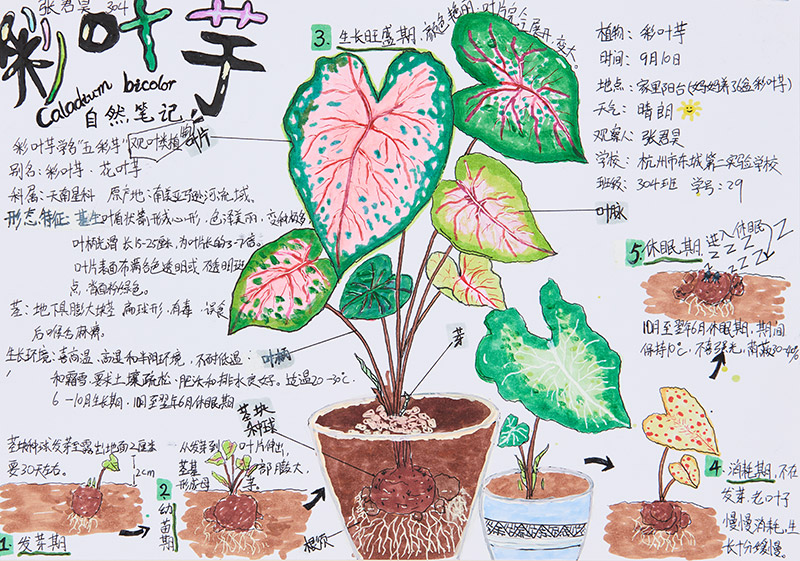 张君昊 304
彩叶芋
Caladium bicolor
自然笔记
彩叶芋学名"五彩芋" 观叶类植物
别名:彩叶芋·花叶芋
科属:天南星科 原产地:南美亚马逊河流域。
形态特征:基生叶盾状箭形或心形,色泽美丽,变种极多
叶柄光滑 长15-25厘米,为叶片长的3-7倍。
叶片表面有满各色透明或不透明斑
点,背面粉绿色。
茎:地下具膨大块茎 扁球形,有毒 误食
后喉舌麻痹。
生长环境:喜高温、高湿和半阴环境,不耐低温
和霜雪 要求土壤疏松、肥沃和排水良好。适温20-30℃
6-10月生长期,10月至翌年6月休眠期
3. 生长旺盛期,颜色艳明,叶片完全展开,变大。
植物:彩叶芋
时间:9月10日
地点:家里阳台(妈妈养了6盆彩叶芋)
天气:晴朗
观察人:张君昊
学校:杭州市东城第二实验学校
班级:304班 学号:29
叶片
叶脉
叶柄
芽
茎块
种球
根须
块茎种球发芽至露出地面2厘米
要30天左右。
2cm
1. 发芽期
2 幼苗期
从发芽到
叶片伸出,
茎基
部膨大,
形成母
茎。
4. 消耗期,不在
发芽,老叶子
慢慢消耗,生
长十分缓慢。
5. 休眠期 进入休眠
ZZZZZZ
10月至翌年6月休眠期,期间
保持10℃,不有强光,荫蔽30-40%